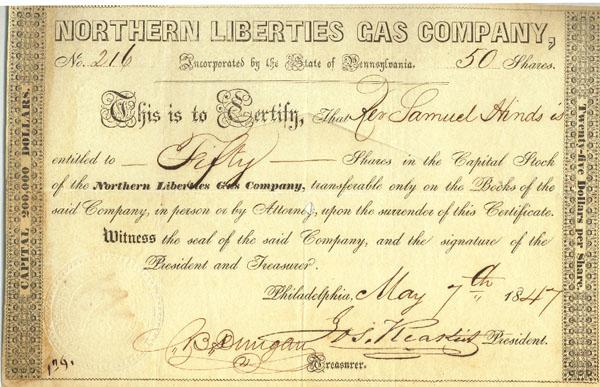 NORTHERN LIBERTIES GAS COMPANY,
No. 216 Incorporated by the State of Pennsylvania. 50 Shares.
This is to Certify, That Rev Samuel Hinds is
entitled to — Fifty — Shares in the Capital Stock
of the Northern Liberties Gas Company, transferable only on the Books of the
said Company, in person or by Attorney, upon the surrender of this Certificate.
Witness the seal of the said Company, and the signature of the
President and Treasurer.
Philadelphia, May 7th 1847
President.
Treasurer.
CAPITAL 200,000 DOLLARS.
Twenty-five Dollars per Share.